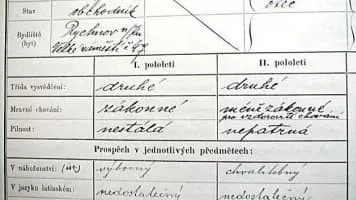 Stav obchodník otec
Bydliště Rychnov n/Kn
(byt) Velké náměstí č.
I. pololetí II. pololetí
Třída vysvědčení: druhé druhé
Mravné chování: zákonné méně zákonné
pro vzdorovité chování
Pilnost: nestálá nepatrná
Prospěch v jednotlivých předmětech:
V náboženství: výborný chvalitebný
V jazyku latinském: nedostatečný nedostatečný